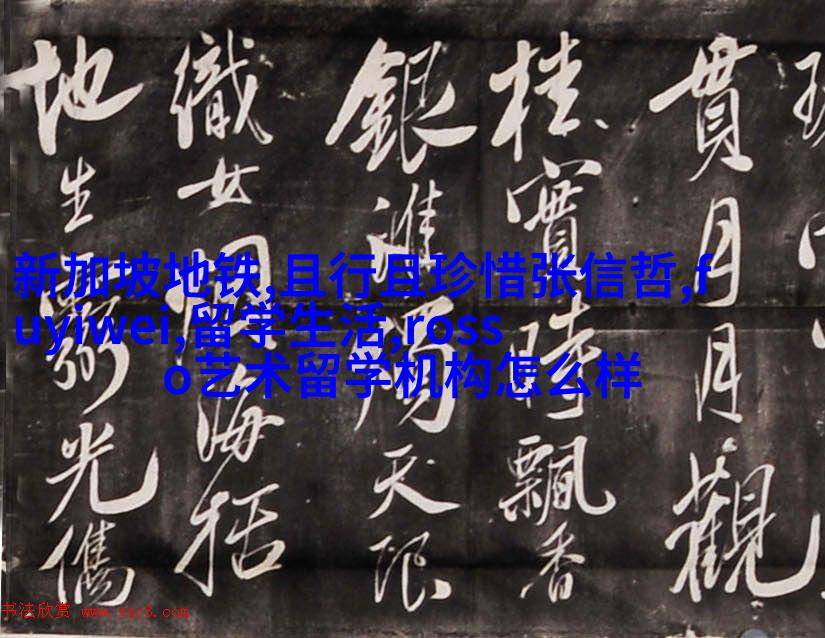 新加坡地铁,且行且珍惜张信哲,f
uyiwei,留学生活,ross
o艺术留学机构怎么样
貫月月觀
桂實時飄香
銀淮濁天限
織女海括
地生光儁
书法欣赏 www.yac8.com